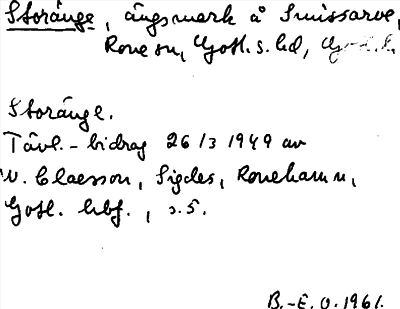 Storänge, ängsmark å Smissarve,
Rone sn, Gotl. s. hd, Gotl. l.
Storänge.
Tävl.-bidrag 26/3 1949 av
W. Claesson, Sigdes, Ronehamn,
Gotl. hbf., s. 5.
B.-E. O. 1961.